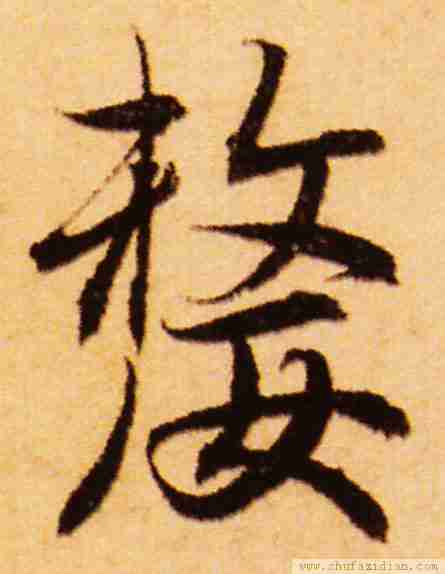 嫠
www.shufazidian.com